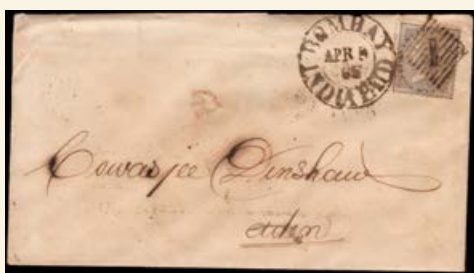 BOMBAY
APR
INDIA PAID
1
Cowasjee Dinshaw
Aden